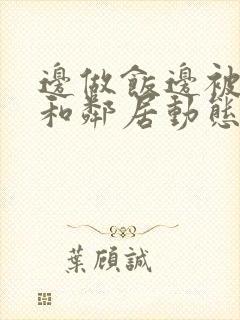 邊做飯邊被
和鄰居動態
葉顧誠